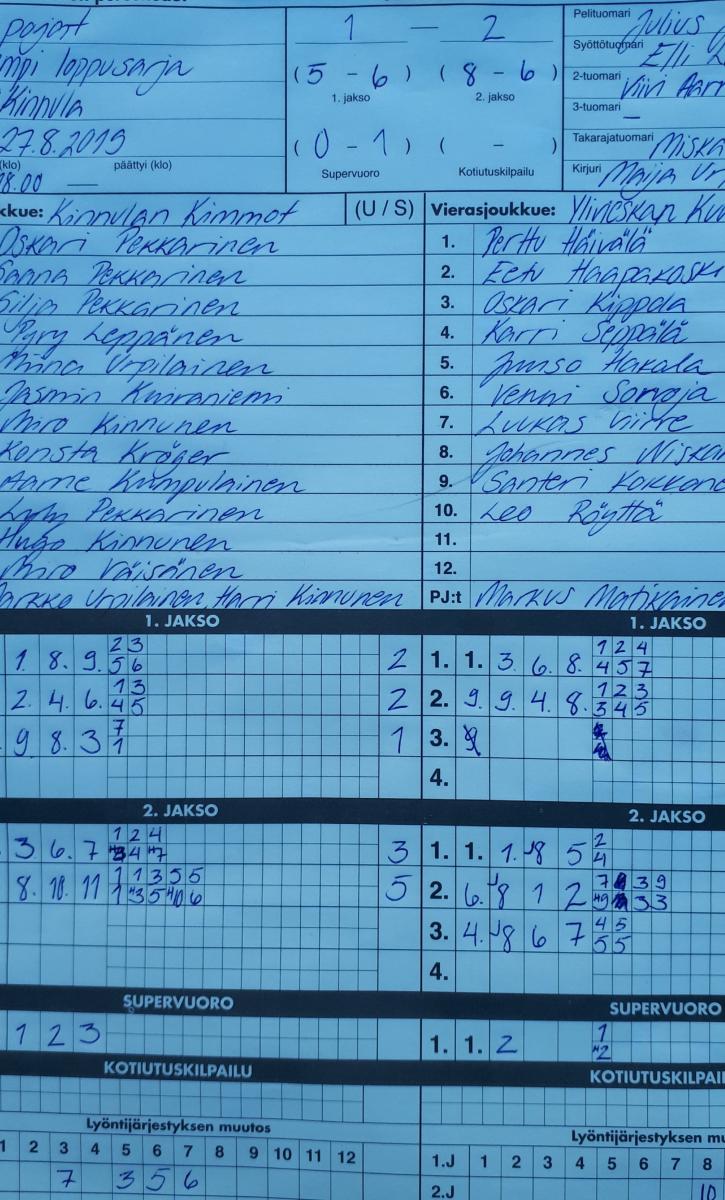 pojat
1 — 2
Pelituomari Julius
mpi loppusarja
(5 - 6) (8 - 6)
Syöttötuomari Elli
Kinnula
1. jakso 2. jakso
2-tuomari Viivi Aarn
27.8.2019
3-tuomari —
(klo) päättyi (klo)
(0 - 1) ( - )
Takarajatuomari Miska
18.00 —
Supervuoro Kotiutuskilpailu
Kirjuri Maija Ur
kkue: Kinnulan Kimmot (U / S) Vierasjoukkue: Ylivieskan Ku
Oskari Pekkarinen 1. Perttu Häivälä
Sanna Pekkarinen 2. Eetu Haapakoski
Silja Pekkarinen 3. Oskari Kippola
Pyry Leppänen 4. Karri Seppälä
Minna Urpilainen 5. Juuso Hakala
Jasmin Kuiraniemi 6. Venni Sorvoja
Miro Kinnunen 7. Luukas Viirre
Konsta Kröger 8. Johannes Niska
Aarne Kumpulainen 9. Santeri Kokkone
Pekkarinen 10. Leo Röyttä
Hugo Kinnunen 11.
Miro Väisänen 12.
arkko Urpilainen, Harri Kinnunen PJ:t Markus Matikaine
1. JAKSO 1. JAKSO
1. 8. 9. 2 3 2 1. 1. 3. 6. 8. 1 2 4
5 6 4 5 7
2. 4. 6. 1 3 2 2. 9. 9. 4. 8. 1 2 3
4 5 3 4 5
9 8 3 7 1 3.
1
4.
2. JAKSO 2. JAKSO
3 6. 7 1 2 4 3 1. 1. 1. J8 5 2
4 7 4
8. 10. 11 1 1 3 5 5 5 2. 6. J8 1 2 7 3 9
1 3 5 10 6 9 3 3
3. 4. J8 6 7 4 5
5 5
4.
SUPERVUORO SUPERVUORO
1 2 3 1. 1. 2 1
2
KOTIUTUSKILPAILU KOTIUTUSKILPAI
Lyöntijärjestyksen muutos Lyöntijärjestyksen mu
1 2 3 4 5 6 7 8 9 10 11 12 1.J 1 2 3 4 5 6 7 8
7 3 5 6 2.J 10